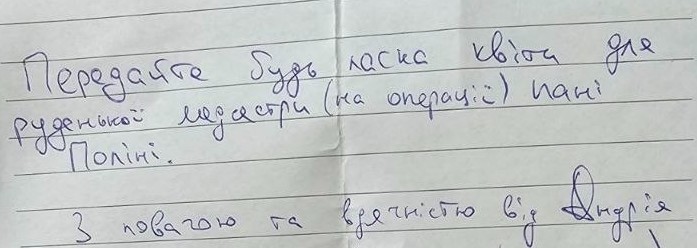 Передайте будь ласка квіти для
руденької медсестри (на операції) пані
Поліні.
З повагою та вдячністю від Андрія